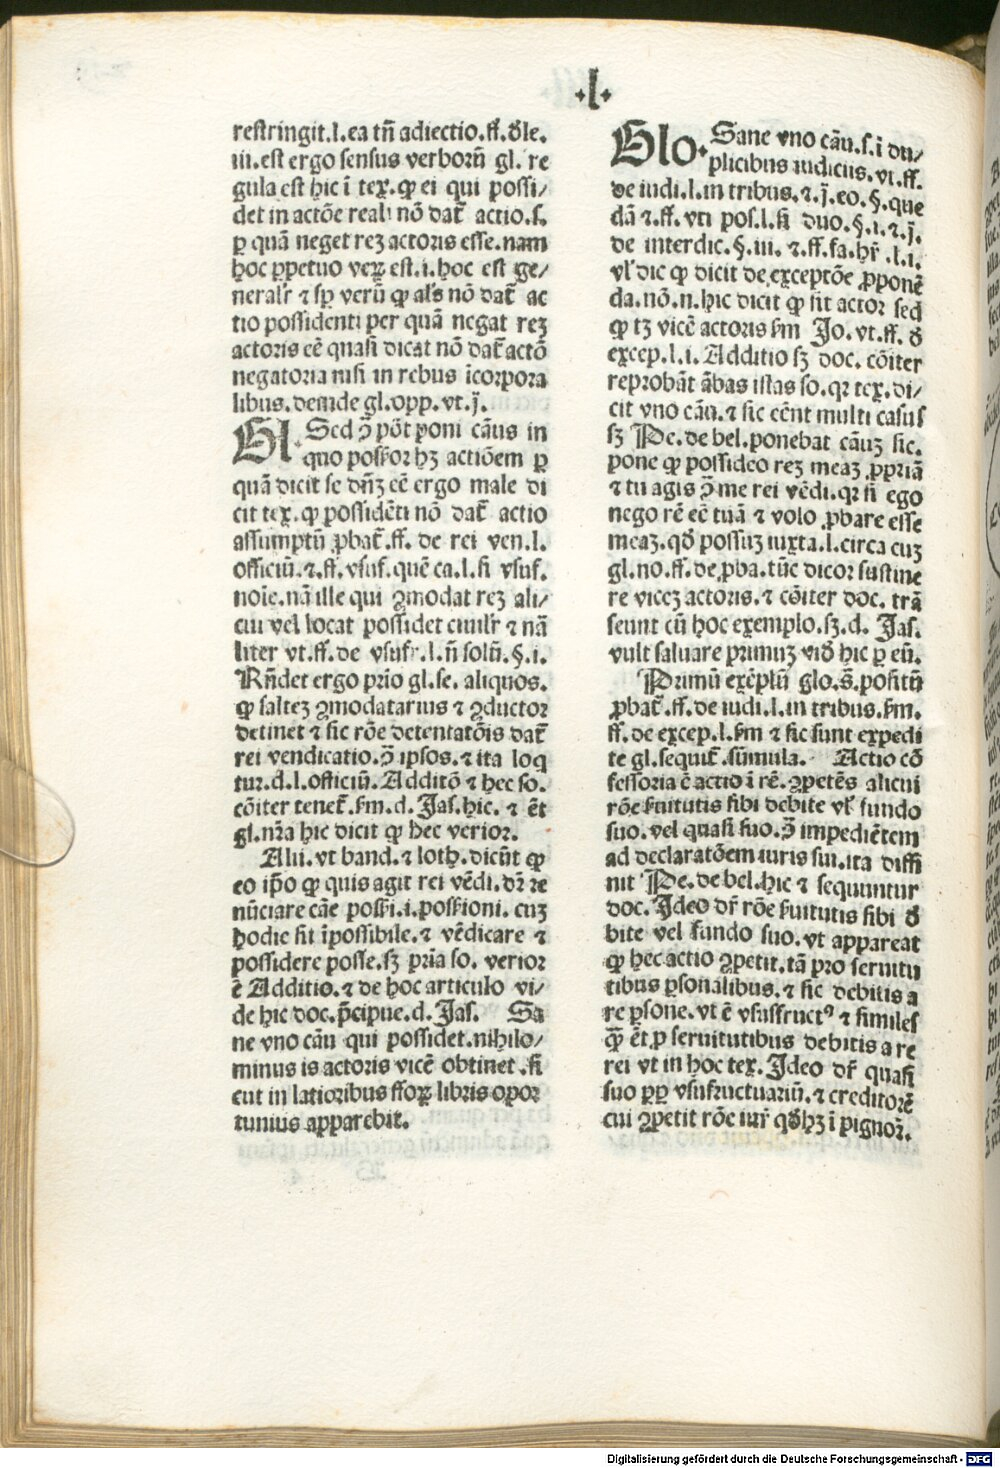 ·l·
restringit.l.ea tñ adiectio.ff.ꝺle.
iii.est ergo sensus verborũ gl. re
gula est hic ĩ tex.ꝙ ei qui possi/
det in actõe reali nõ dat̃ actio.s.
ꝑ quã neget reʒ actoris esse.nam
hoc ꝑpetuo veꝝ est.i.hoc est ge/
neralr̃ ⁊ sꝑ verũ ꝙ als̃ nõ dat̃ ac
tio possidenti per quã negat reʒ
actoris eẽ quasi dicat nõ dat̃ actõ
negatoria nisi in rebus ĩcorpora
libus.deinde gl.opp.vt.j̃.
Gl. Sed ꝯ̃ põt poni cãus in
quo possor hʒ actiõem ꝑ
quã dicit se dñʒ eẽ ergo male di
cit tex.ꝙ possidẽti nõ dat̃ actio
assumptũ ꝓbat̃.ff. de rei ven.l.
officiũ.⁊.ff.vsuf.quẽ ca.l.fi vsuf.
noie.nã ille qui ꝯmodat reʒ ali/
cui vel locat possidet ciuilr̃ ⁊ nã
liter vt.ff.de vsufr.l.ñ solũ.§.i.
Rñdet ergo prio gl.se. aliquos.
ꝙ salteʒ ꝯmodatarius ⁊ ꝯductor
detinet ⁊ sic rõe detentatõis dat̃
rei vendicatio.ꝯ̃ ipsos.⁊ ita loq
tur.d.l.officiũ.Additõ ⁊ hec so.
cõiter tenet̃.fm.d.Jas.hic. ⁊ ẽt
gl.nr̃a hic dicit ꝙ hec verior.
Alii.vt band.⁊ loth.dicũt ꝙ
eo ip̃o ꝙ quis agit rei vẽdi.dr̃ re
nũciare cãe possi.i.possioni. cuʒ
hodie sit ĩpossibile.⁊ vẽdicare ⁊
possidere posse.sʒ pria so. verior
ẽ Additio.⁊ de hoc articulo vi/
de hic doc.p̃cipue.d.Jas. Sa
ne vno cãu qui possidet.nihilo/
minus is actoris vicẽ obtinet.si
cut in latioribus ffoꝝ libris opor
tunius apparebit.
Glo. Sane vno cãu.s.ĩ du/
plicibus iudiciis.vt.ff.
de iudi.l.in tribus.⁊.j̃.eo.§.que
dã ⁊.ff.vti pos.l.fi duo.§.i.⁊.j̃.
de interdic.§.iii. ⁊.ff.fa.hr̃ .l.i.
vl̃ dic ꝙ dicit de exceptõe ꝓponẽ
da.nõ.n.hic dicit ꝙ sit actor sed
ꝙ tʒ vicẽ actoris fm Jo.vt.ff. ꝺ
excep.l.i. Additio sʒ doc. cõiter
reprobãt ãbas istas so.qꝛ tex.di/
cit vno cãu.⁊ sic eẽnt multi casus
sʒ Pe.de bel.ponebat cãuʒ sic.
pone ꝙ possideo reʒ meaʒ ꝓpriã
⁊ tu agis ꝯ̃ me rei vẽdi.qꝛ si ego
nego rẽ eẽ tuã ⁊ volo ꝓbare esse
meaʒ.qꝺ possuʒ iuxta.l.circa cuʒ
gl.no.ff.de ꝓba.tũc dicor sustine
re viceʒ actoris.⁊ cõiter doc. trã
seunt cũ hoc exemplo.sʒ.d. Jas.
vult saluare primuʒ viꝺ hic ꝑ eũ.
Primũ exẽplũ glo.s̃.positũ
ꝓbat̃.ff.de iudi.l.in tribus.fm.
ff.de excep.l.fm ⁊ sic sunt expedi
te gl.sequit̃ .sũmula. Actio cõ
fessoria ẽ actio ĩ rẽ.ꝯpetẽs alicui
rõe suitutis sibi debite vl̃ fundo
suo.vel quasi suo.ꝯ̃ impediẽtem
ad declaratõem iuris sui.ita diffi
nit Pe.de bel.hic ⁊ sequuntur
doc.Ideo dr̃ rõe suitutis sibi ꝺ
bite vel fundo suo.vt appareat
ꝙ hec actio ꝯpetit.tã pro seruitu
tibus ꝑsonalibus.⁊ sic debitis a
re ꝑsone.vt ẽ vsusfructꝰ ⁊ similes
ꝙ̃ ẽt ꝑ seruitutibus debitis a re
rei vt in hoc tex.Ideo dr̃ quasi
suo ꝑꝑ vsufructuariũ.⁊ creditorẽ
cui ꝯpetit rõe iur̃ qꝺ hʒ ĩ pignor̃.
Digitalisierung gefördert durch die Deutsche Forschungsgemeinschaft - DFG